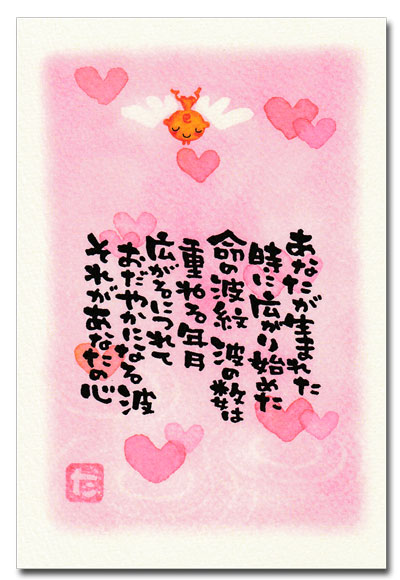 あなたが生まれた
時に広がり始めた
命の波紋 波の数は
重ねる年月
広がるにつれて
おだやかになる波
それがあなたの心
た